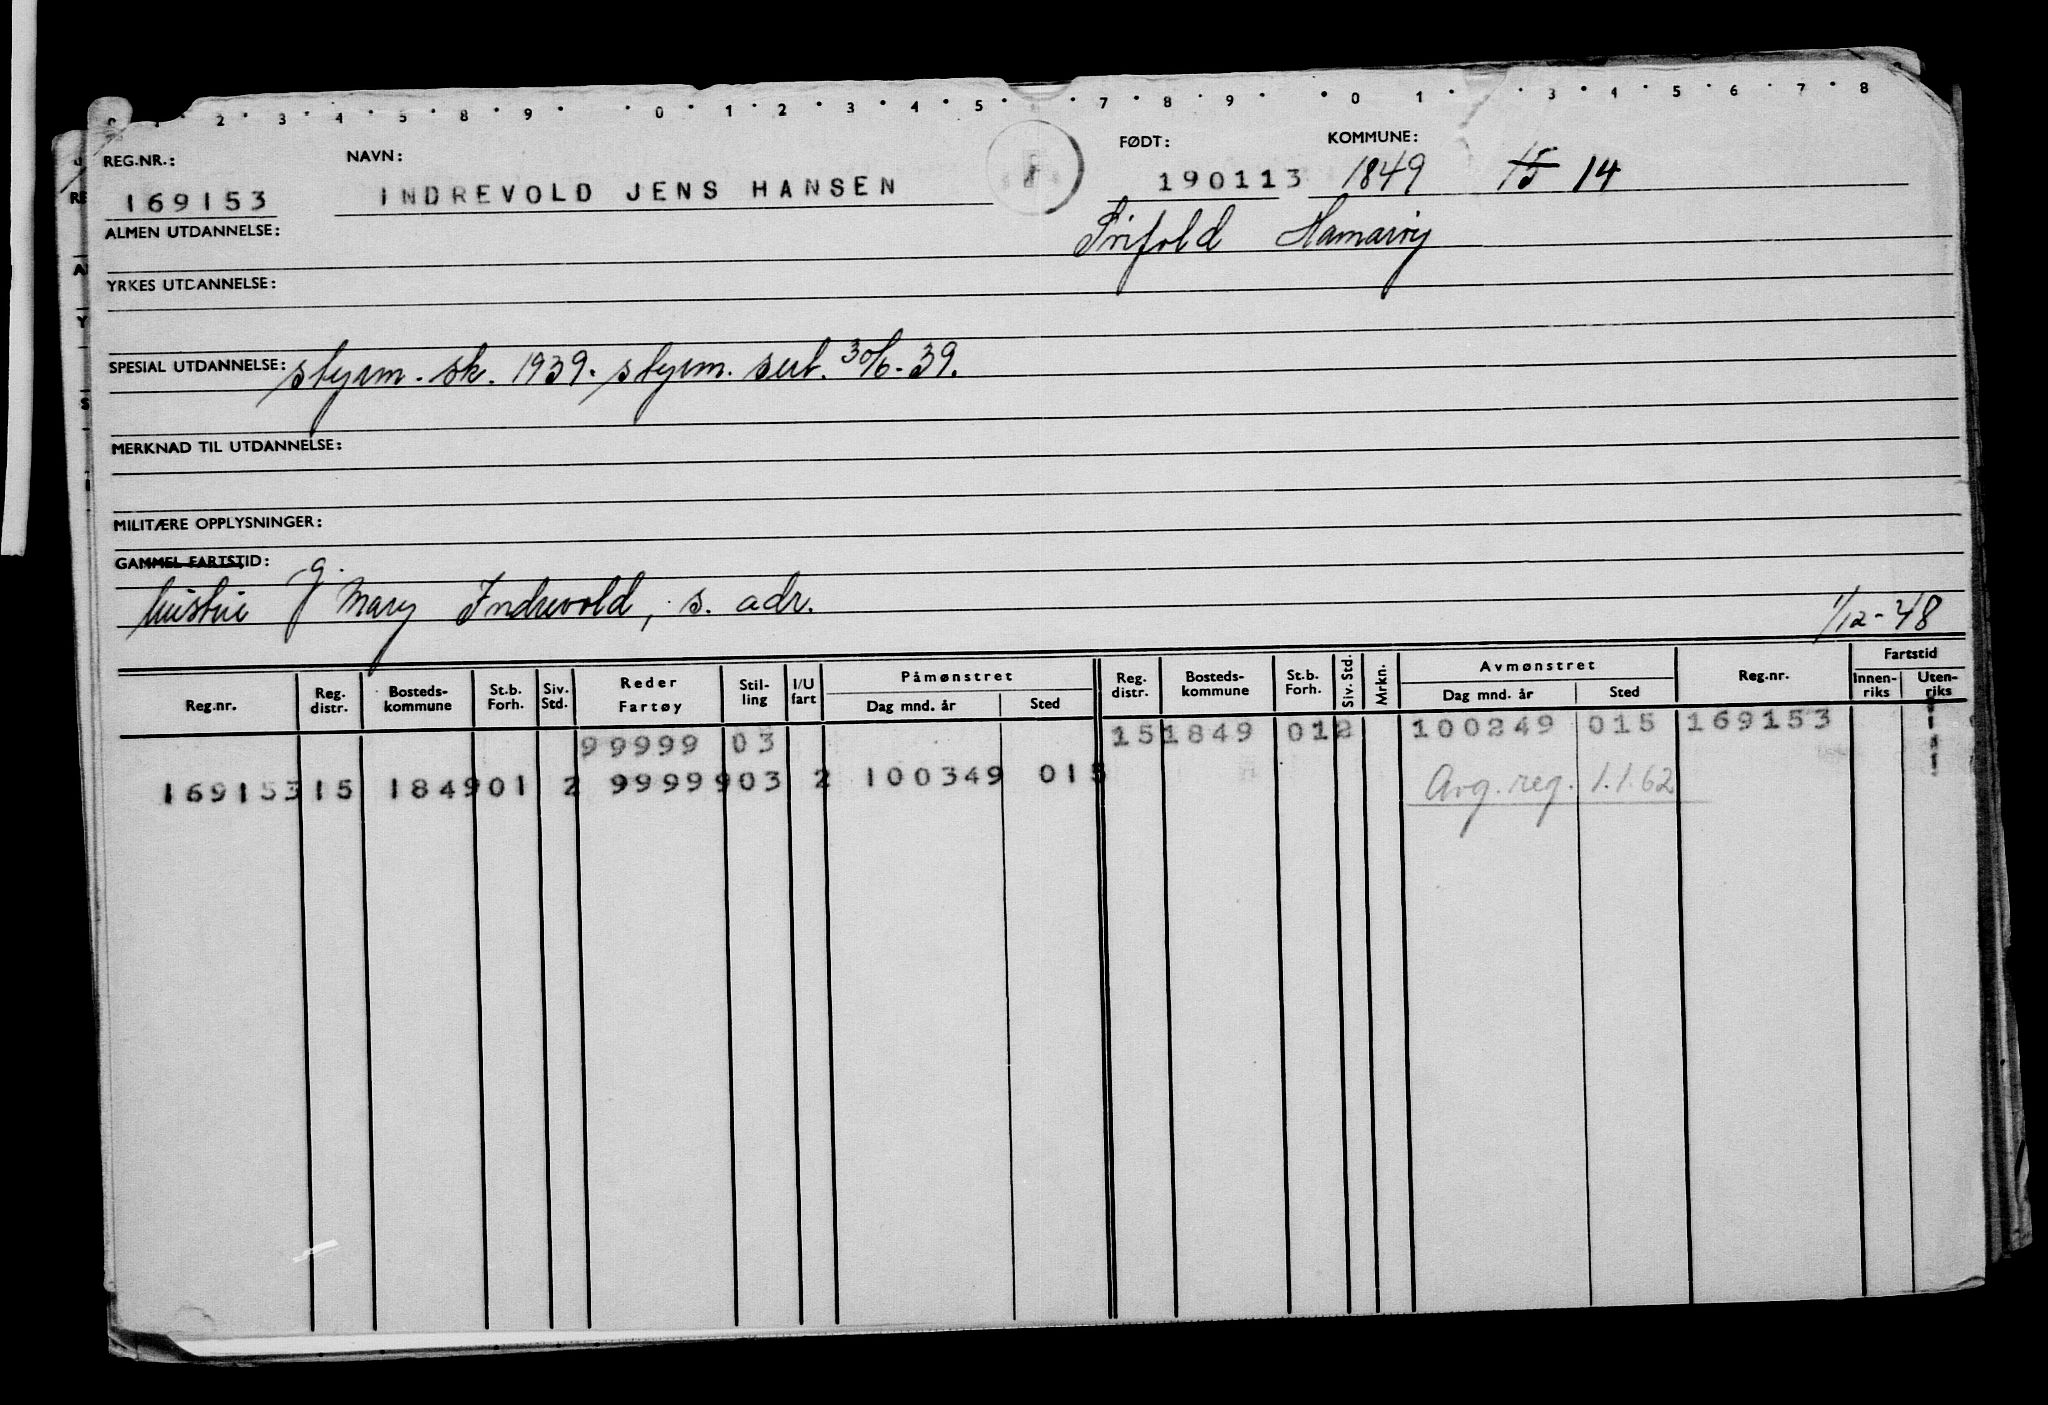 2 3 4 5 8 9 0 1 2 3 4 5 7 8 9 0 1 3 4 5 6 7 8
REG.NR.: NAVN: FØDT: KOMMUNE:
169153 INDREVOLD JENS HANSEN 190113 1849 15 14
ALMEN UTDANNELSE: Hamarøy
YRKES UTDANNELSE:
SPESIAL UTDANNELSE: styrm. sk. 1939. styrm. sert. 30/6-39.
MERKNAD TIL UTDANNELSE:
MILITÆRE OPPLYSNINGER:
GAMMEL FARTSTID:
hustru g. Mary Indrevold, s. adr. 1/12-48
Reg.nr. Reg. distr. Bosteds-kommune St.b. Forh. Siv. Std. Reder Fartøy Stil-ling I/U fart Påmønstret Dag mnd. år Sted Reg. distr. Bosteds-kommune St.b. Forh. Siv. Std. Mrkn. Avmønstret Dag mnd. år Sted Reg.nr. Fartstid Innen-riks Uten-riks
99999 03 15 1849 01 2 100249 015 169153
169153 15 1849 01 2 99999 03 2 100349 015 Avg. reg. 1.1.62